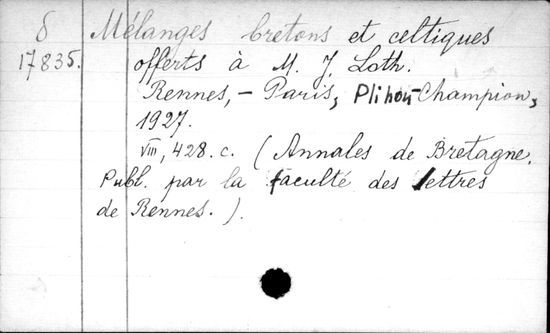 δ Mélanges bretons et celtiques
17835. offerts à M. J. Loth.
Rennes, – Paris, Plihon-Champion,
1927.
VIII, 428. c. (Annales de Bretagne.
Publ. par la faculté des lettres
de Rennes.).